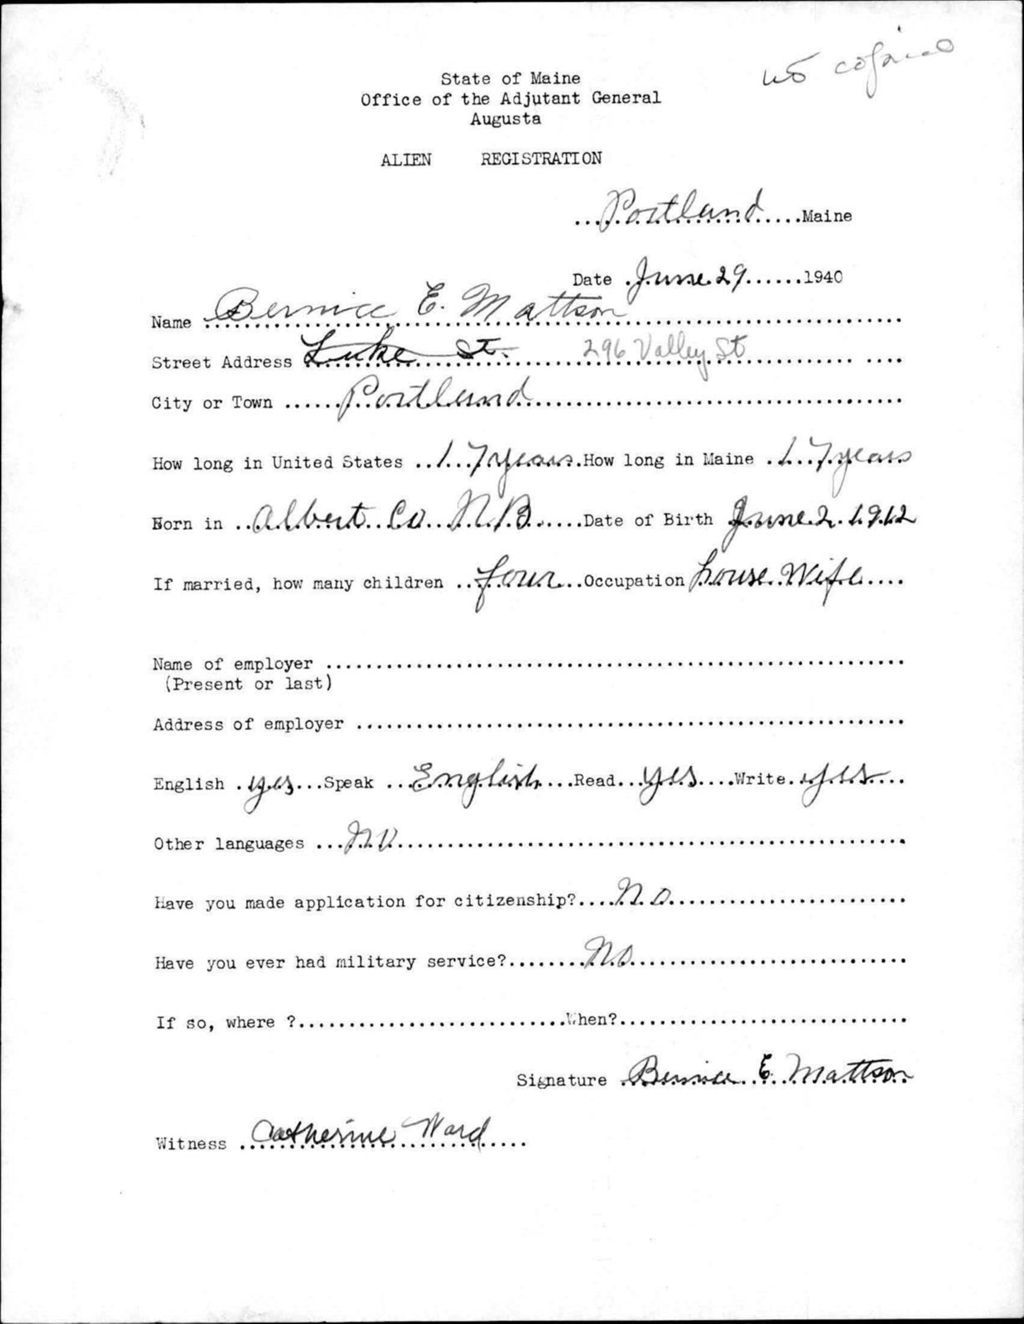 State of Maine
Office of the Adjutant General
Augusta
ALIEN REGISTRATION
...Portland.....Maine
Date .June.29......1940
Name Bernice E. Mattson
Street Address Luke St. 296 Valley St
City or Town ......Portland
How long in United States ..17 years.How long in Maine .17 years
Born in ..Albert Co. N.B.....Date of Birth June.2.1912
If married, how many children ..four...Occupation house.Wife....
Name of employer
(Present or last)
Address of employer
English .yes...Speak ...English...Read...yes....Write.yes...
Other languages ...No
Have you made application for citizenship?....No
Have you ever had military service?........No
If so, where ?...........................When?.............................
Signature .Bernice E. Mattson
Witness Catherine Ward